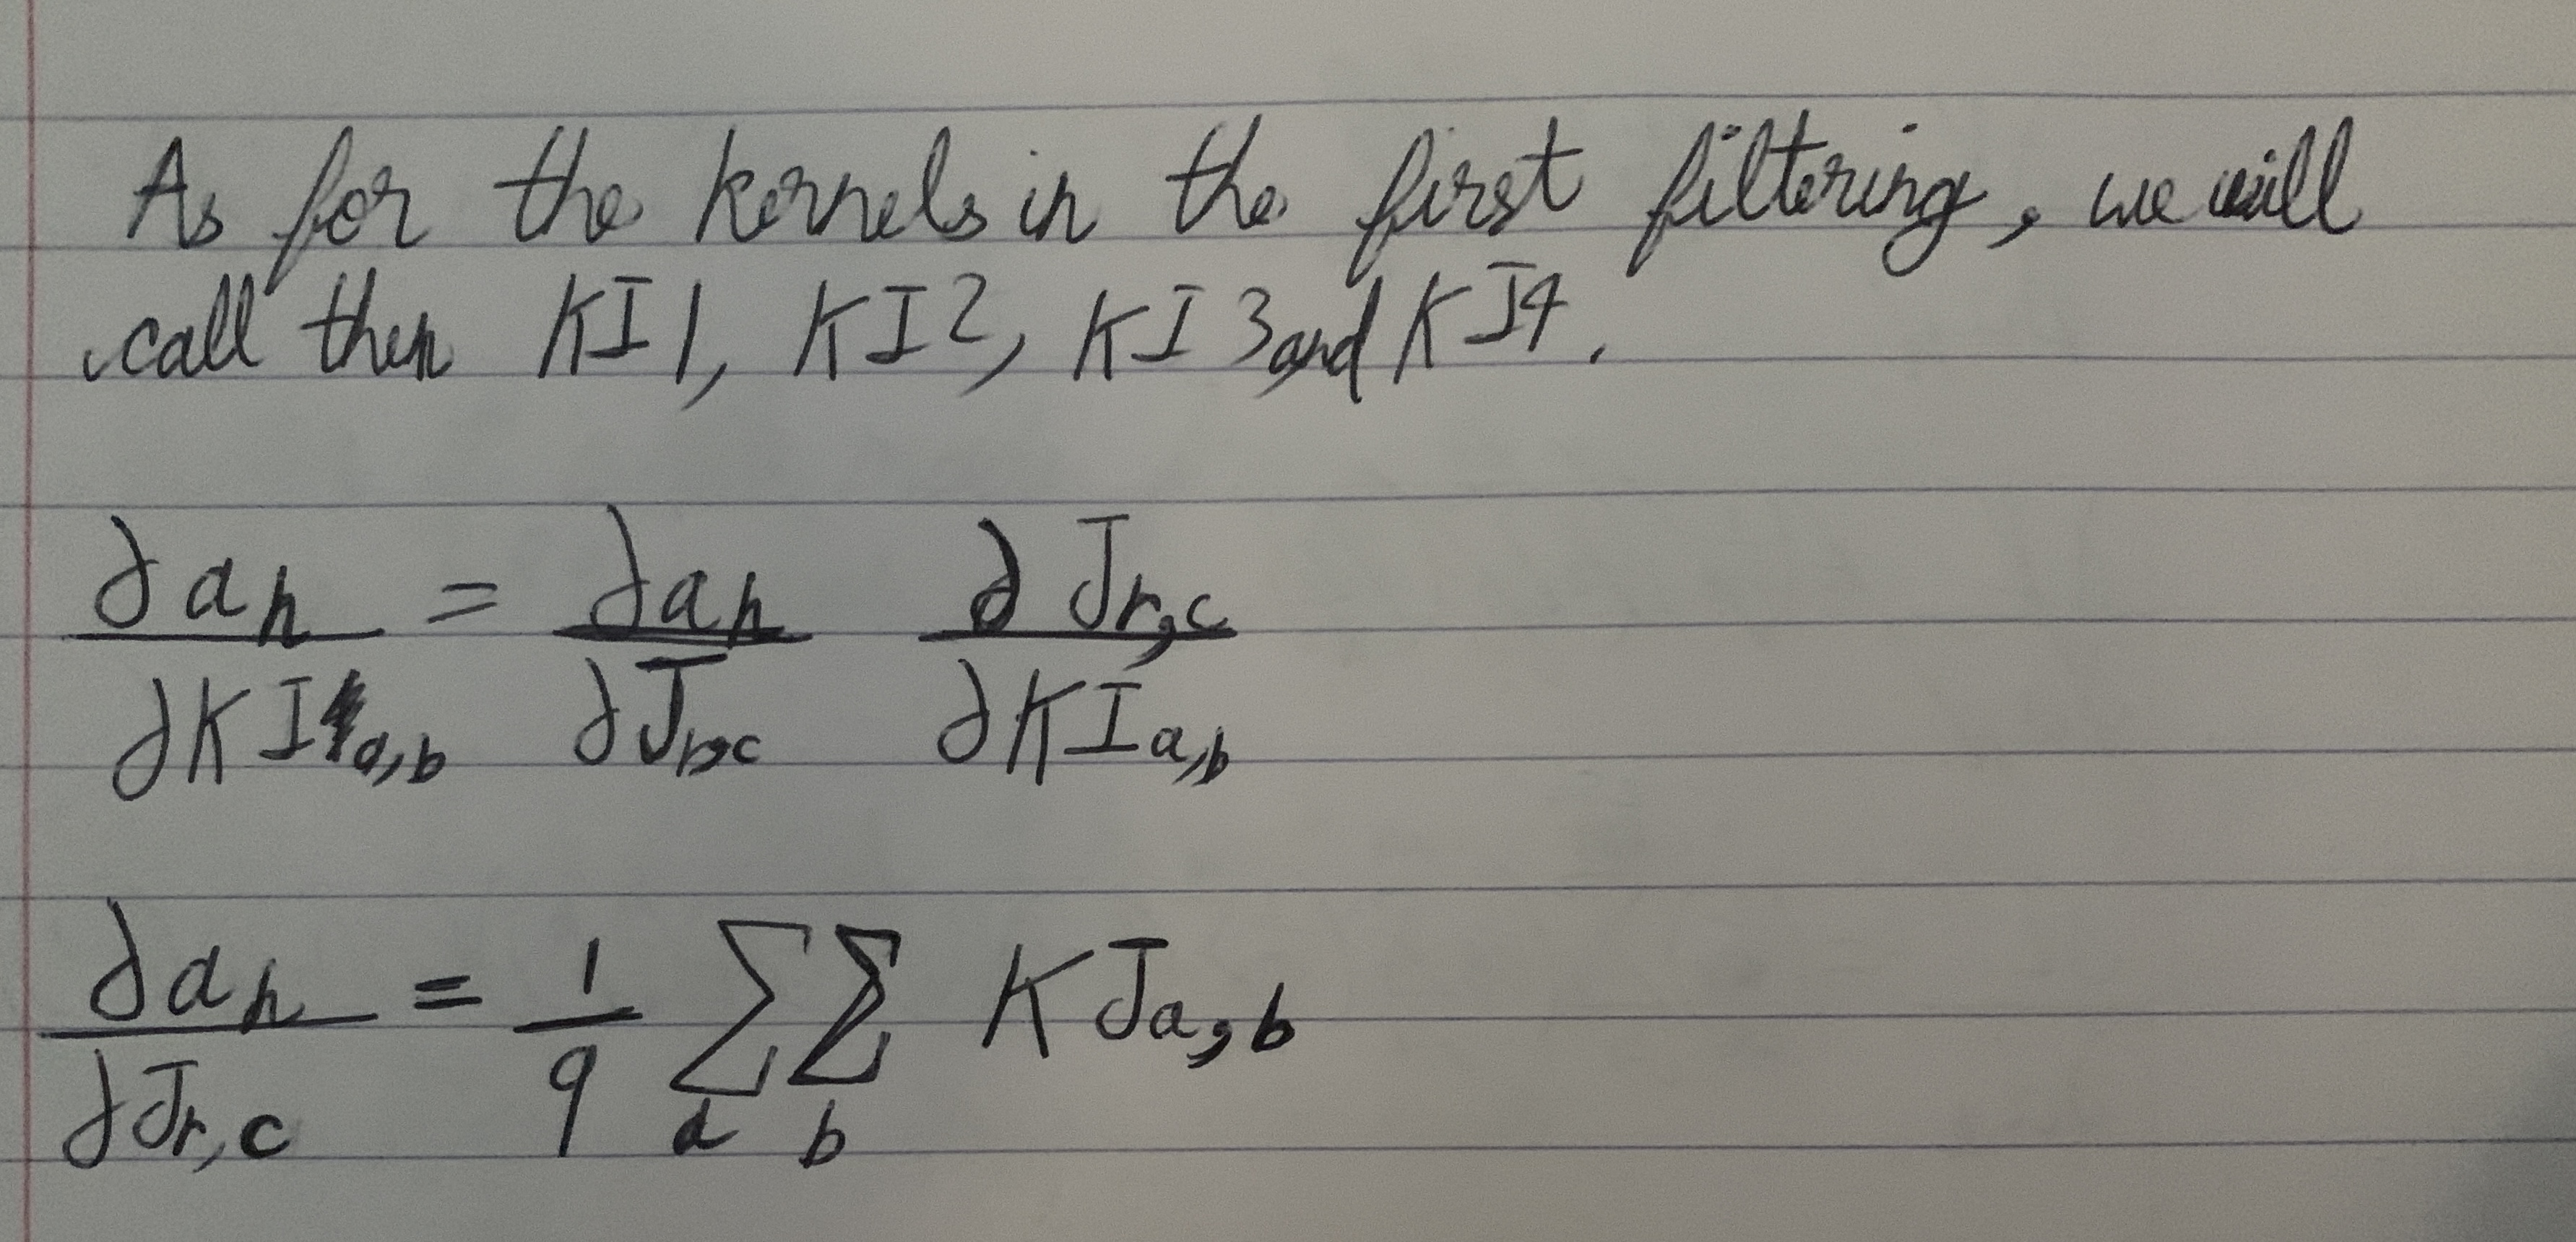 As for the kernels in the first filtering, we will
call them KI1, KI2, KI3 and KI4.
∂a_n/∂KI_{a,b} = ∂a_n/∂J_{r,c} ∂J_{r,c}/∂KI_{a,b}
∂a_n/∂J_{r,c} = 1/9 Σ_a Σ_b KJ_{a,b}